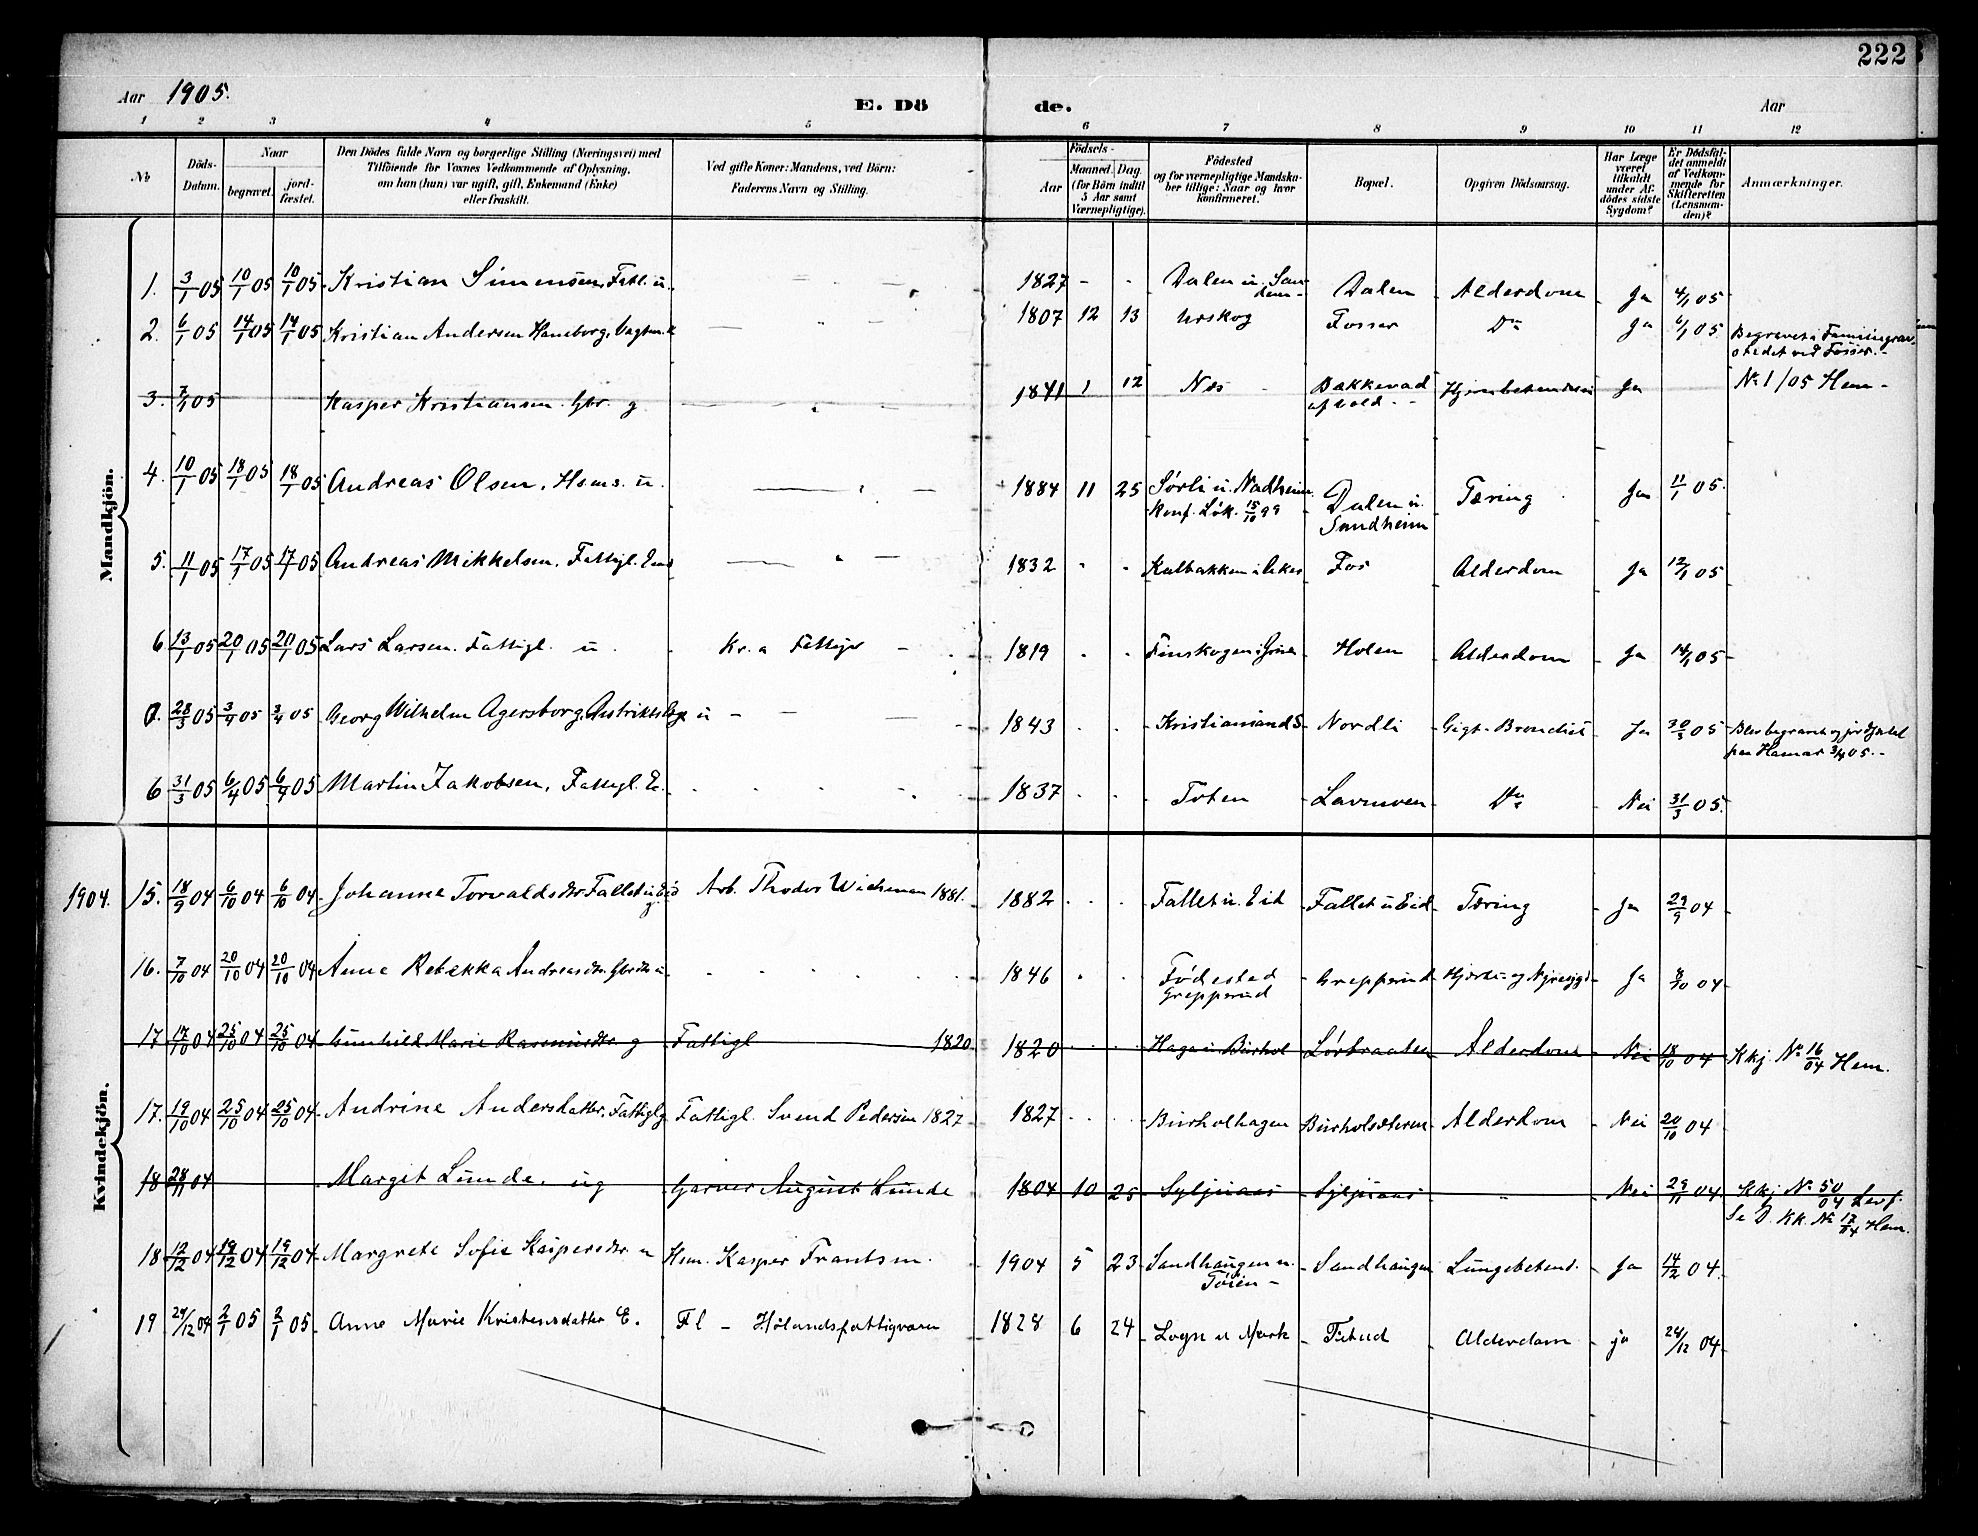 222
Aar 1905.
E. Dö de.
Aar
1 2 3 4 5 6 7 8 9 10 11 12
No
Döds-Datum.
Naar
begravet.
jord-fæstet.
Den Dödes fulde Navn og borgerlige Stilling (Næringsvei) med
Tilföiende for Voxnes Vedkommende af Oplysning,
om han (hun) var ugift, gift, Enkemand (Enke)
eller fraskilt.
Ved gifte Koner: Mandens, ved Börn:
Faderens Navn og Stilling.
Födsels-
Aar
Maaned. Dag
(for Börn indtil
5 Aar samt
Værnepligtige).
Födested
og for værnepligtige Mandskaber tillige: Naar og hvor
konfirmeret.
Bopæl.
Opgiven Dödsaarsag.
Har Læge
været
tilkaldt
under Afdödes sidste
Sygdom?
Er Dödsfaldet anmeldt
af Vedkommende for
Skifteretten
(Lensmanden)?
Anmærkninger.
Mandkjön.
1. 3/1 05 10/1 05 10/1 05 Kristian Simensen, Fatl. u. 1827 - - Dalen u. Sandem - Dalen Alderdom Ja 4/1 05
2. 6/1 05 14/1 05 14/1 05 Kristian Andersen Haneborg, 1807 12 13 Urskog Fosser Do Ja 6/1 05 Begravet i Familiegravstedet ved Fosser. -
3. 7/1 05 Kasper Kristiansen Gbr. g 1841 1 12 Næs Bækkevad af Hjernebetendelse Ja No 1/05 Hem -
4. 10/1 05 18/1 05 18/1 05 Andreas Olsen, Hsms. u. 1884 11 25 Sörli u. Nadheim Konf. Løk. 15/10 99 Dalen u. Sandheim Tæring Ja 11/1 05.
5. 11/1 05 17/1 05 17/1 05 Andreas Mikkelsen, Fattigl. Enk 1832 - - Kalbakken i Aker Fos Alderdom Ja 12/1 05
6 13/1 05 20/1 05 20/1 05 Lars Larsen. Fattigl. u. Kr.a Fattigv 1819 - - Finskogen i Holen Alderdom Ja 14/1 05
7. 28/3 05 3/4 05 3/4 05 Georg Wilhelm Agersborg, Distriktslæge u 1843 Kristiansand S Nordli Gigt - Ja 30/3 05 Blev begravet og jordfæstet paa Hamar 3/4 05. -
6 31/3 05 6/4 05 6/4 05 Martin Jakobsen, Fattigl. E. 1837 Toten Do Nei 31/3 05.
Kvindekjön.
1904. 15. 18/9 04 6/10 04 6/10 04 Johanne Torvaldsdtr Fallet u Eid g. Arb. Thodor Wichman 1881. 1882 Fallet u. Eid Fallet u Eid Tæring Ja 29/9 04
16. 7/10 04 20/10 04 20/10 04 Anne Rebekka Andreasdtr. Gbrdtr u 1846 Födested Grepperud Grepperud Hjerte- og Nyresygd. Ja 8/10 04
17 17/10 04 25/10 04 25/10 04 Gunhild Marie Rasmusdtr g Fattigl 1820. 1820 Haga u Burhol Lørbraaten Alderdom Nei 18/10 04 Kkj. No 16/04 Hem.
17. 19/10 04 25/10 04 25/10 04 Andrine Andersdatter, Fattiglg Fattigl. Svend Pedersen 1827 1827 Burholhagen Burholsæteren Alderdom Nei 20/10 04
18 28/11 04 Margit Lunde. ug Garver August Lunde 1804 10 25 Syljuaas Syljuaas Nei 29/11 04. Kkj No 50/04
Se D. KK. No 17/04 Hem.
18 12/12 04 19/12 04 19/12 04 Margrete Sofie Kaspersdtr. u Hsm. Kasper Frantsen. 1904 5 23 Sandhaugen u. Töien - Sandhaugen Lungebetend. Ja 14/12 04.
19 24/12 04 2/1 05 2/1 05 Anne Marie Kristensdatter E. Fl - Hølandsfattigvæsen 1828 6 24 Logn u Mork Alderdom ja 28/12 04